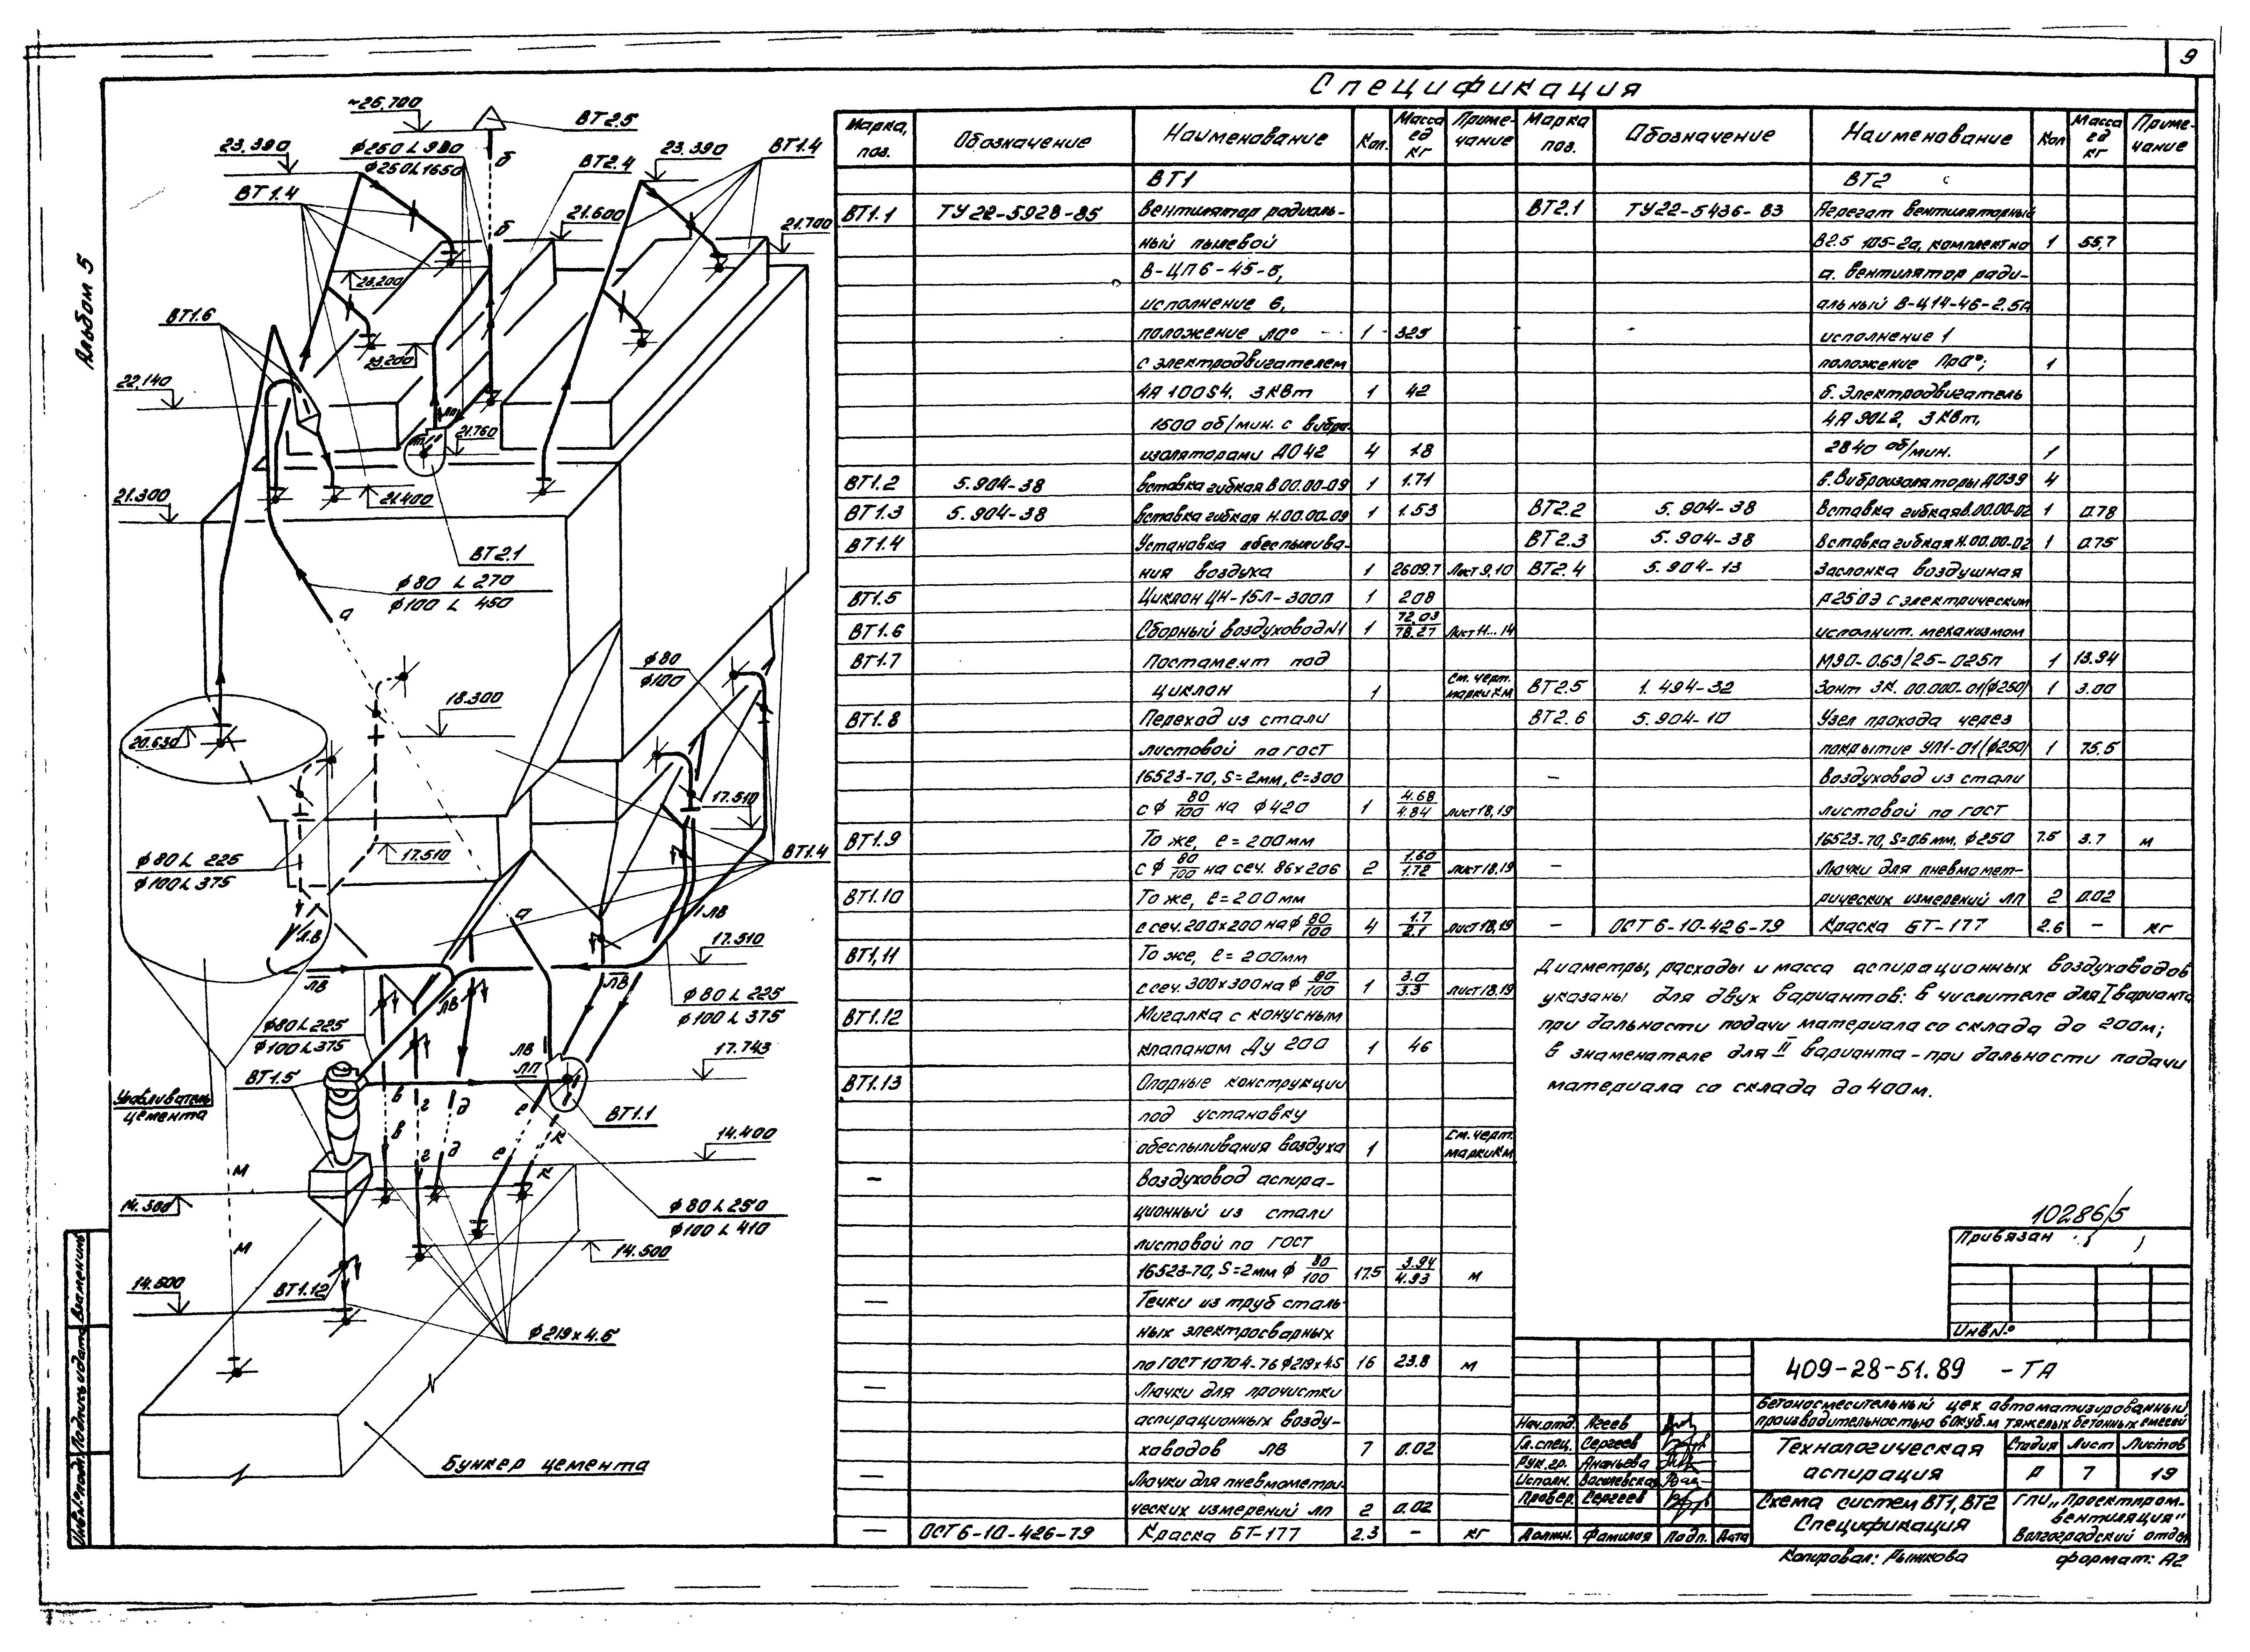 9
Альбом 5
Спецификация
~26,700
ВТ2.5
23.390
ф250 L 980
ф250 L 1650
б
ВТ2.4
23.390
ВТ1.4
ВТ1.4
21.600
21.700
б
23.200
ВТ1.6
23.200
22,140
21.760
21.300
21.400
ВТ2.1
ф80 L 270
ф100 L 450
а
ф80
ф100
18.300
20.630
17.510
17.510
ВТ1.4
ф80 L 225
ф100 L 375
а
ЛВ
ЛВ
17.510
ЛВ
ЛВ
ЛВ
ф80 L 225
ф100 L 375
ф80 L 225
ф100 L 375
ЛВ
ЛП
17.743
ВТ1.5
цемента
в г д е к
ВТ1.1
14.400
в г д е к
м
14.300
ф80 L 250
ф100 L 410
м
14.500
14.500
ВТ1.12
ф219х4.5
Бункер цемента
Марка, поз. Обозначение Наименование Кол. Масса ед кг Примечание
ВТ1
ВТ1.1 ТУ22-5928-85 Вентилятор радиаль-
ный пылевой
В-ЦП6-45-5,
исполнение 6,
положение Л0° 1 325
с электродвигателем
4А 100S4, 3 кВт 1 42
1500 об/мин. с вибро-
изоляторами ДО42 4 1.8
ВТ1.2 5.904-38 Вставка гибкая В.00.00-09 1 1.71
ВТ1.3 5.904-38 Вставка гибкая Н.00.00-09 1 1.53
ВТ1.4 Установка обеспылива-
ния воздуха 1 2609.7 Лист 9,10
ВТ1.5 Циклон ЦН-15Л-300П 1 208
ВТ1.6 Сборный воздуховод №1 1 72,03/78.27 Лист 11...14
ВТ1.7 Постамент под
циклон 1 См. черт. марки КМ
ВТ1.8 Переход из стали
листовой по ГОСТ
16523-70, S=2мм, е=300
с ф 80/100 на ф420 1 4.68/4.84 лист 18,19
ВТ1.9 То же, е=200мм
с ф 80/100 на сеч. 86х206 2 1.60/1.72 лист 18,19
ВТ1.10 То же, е=200мм
с сеч. 200х200 на ф 80/100 4 1.7/2.1 лист 18,19
ВТ1.11 То же, е=200мм
с сеч. 300х300 на ф 80/100 1 3.0/3.3 лист 18.19
ВТ1.12 Мигалка с конусным
клапаном Ду 200 1 46
ВТ1.13 Опорные конструкции
под установку
обеспыливания воздуха 1 См. черт. марки КМ
— Воздуховод аспира-
ционный из стали
листовой по ГОСТ
16523-70, S=2мм ф 80/100 17.5 3.94/4.93 м
— Течки из труб сталь-
ных электросварных
по ГОСТ 10704-76 ф219х4.5 16 23.8 м
— Лючки для прочистки
аспирационных возду-
ховодов ЛВ 7 0.02
— Лючки для пневмометри-
ческих измерений ЛП 2 0.02
— ОСТ 6-10-426-79 Краска БТ-177 2.3 — кг
Марка поз. Обозначение Наименование Кол Масса ед кг Приме-чание
ВТ2
ВТ2.1 ТУ22-5436-83 Агрегат вентиляторный
В2.5 105-2а, комплектно 1 55,7
а. вентилятор ради-
альный В-Ц14-46-2.5А
исполнение 1
положение Пр0°; 1
б. Электродвигатель
4А 90L2, 3 кВт,
2840 об/мин. 1
в. Виброизоляторы ДО39 4
ВТ2.2 5.904-38 Вставка гибкая В.00.00-02 1 0.78
ВТ2.3 5.904-38 Вставка гибкая Н.00.00-02 1 0.75
ВТ2.4 5.904-13 Заслонка воздушная
Р250Э с электрическим
исполнит. механизмом
МЭО-0.63/25-025П 1 13.94
ВТ2.5 1.494-32 Зонт ЗК. 00.000-01(ф250) 1 3.00
ВТ2.6 5.904-10 Узел прохода через
покрытие УП1-01(ф250) 1 75.5
— Воздуховод из стали
листовой по ГОСТ
16523-70, S=0.6 мм, ф250 7.5 3.7 м
— Лючки для пневмомет-
рических измерений ЛП 2 0.02
— ОСТ 6-10-426-79 Краска БТ-177 2.6 — кг
Диаметры, расходы и масса аспирационных воздуховодов
указаны для двух вариантов: в числителе для I варианта
при дальности подачи материала со склада до 200м;
в знаменателе для II варианта - при дальности подачи
материала со склада до 400м.
10286/5
Привязан
Инв №
409-28-51.89 -ТА
Бетоносмесительный цех автоматизированный
производительностью 60куб.м тяжелых бетонных смесей
Нач.отд. Агеев
Гл.спец. Сергеев
Рук.гр. Ананьева
Исполн. Василевская
Провер. Сергеев
Должн. Фамилия Подп. Дата
Технологическая
аспирация
Стадия Лист Листов
Р 7 19
Схема систем ВТ1, ВТ2
Спецификация
ГПИ „Проектпром-
вентиляция"
Волгоградский отдел
Копировал: Рыжкова
формат: А2
Инв.№подл. Подпись и дата Взам.инв.№